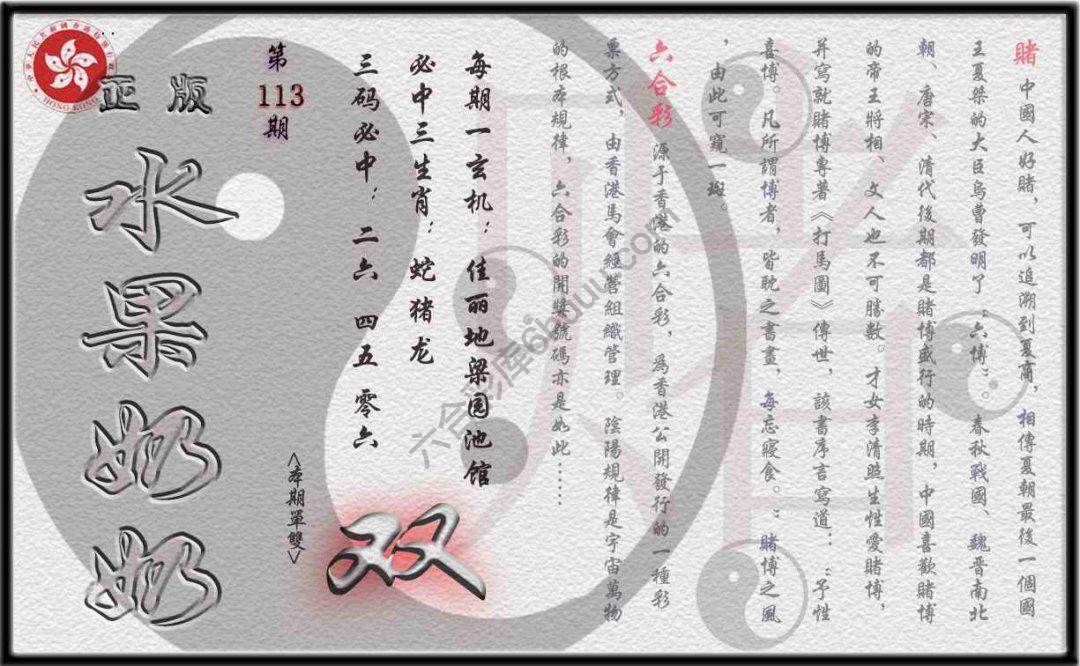 賭 中國人好賭，可以追溯到夏商，相傳夏朝最後一個國
王夏桀的大臣烏曹發明了“六博”。春秋戰國、魏晉南北
朝、唐宋、清代後期都是賭博盛行的時期，中國喜歡賭博
的帝王將相、文人也不可勝數。才女李清照生性愛賭博，
并寫就賭博專著《打馬圖》傳世，該書序言寫道：“予性
喜博。凡所謂博者，皆耽之書畫，每忘寢食。”賭博之風
，由此可窺一斑。
六合彩 源于香港的六合彩，為香港公開發行的一種彩
票方式，由香港馬會經營組織管理。陰陽規律是宇宙萬物
的根本規律，六合彩的開獎號碼亦是如此……
每期一玄机：佳丽地梁园池馆
必中三生肖：蛇猪龙
三码必中：二六 四五 零六
双
<本期單雙>
第
113
期
正版
水果奶奶
HONG KONG
六合彩库6huuu.com